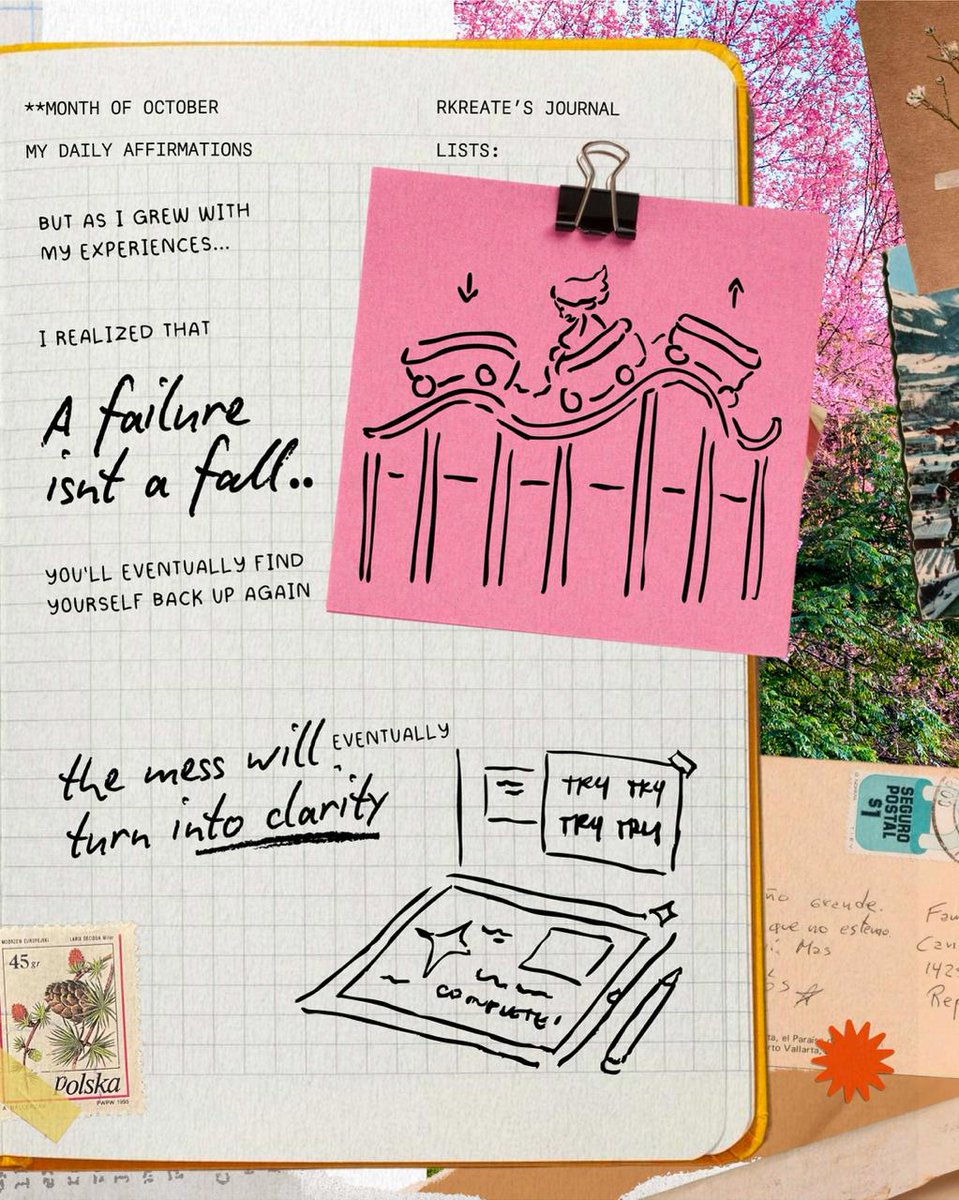 **MONTH OF OCTOBER
RKREATE'S JOURNAL
MY DAILY AFFIRMATIONS
LISTS:
BUT AS I GREW WITH
MY EXPERIENCES...
I REALIZED THAT
A failure
isnt a fall..
YOU'LL EVENTUALLY FIND
YOURSELF BACK UP AGAIN
the mess will EVENTUALLY
turn into clarity
TRY TRY
TRY TRY
COMPLETE!
SEGURO
POSTAL
$1
grande.
que no estemo
Mas
Fam
Can
142
Rep
ta, el Paraíso
rto Vallarta,
MODRZEW EUROPEJSKI
LARIX DECIDUA Miller
45 gr
Polska
PWPW 1993